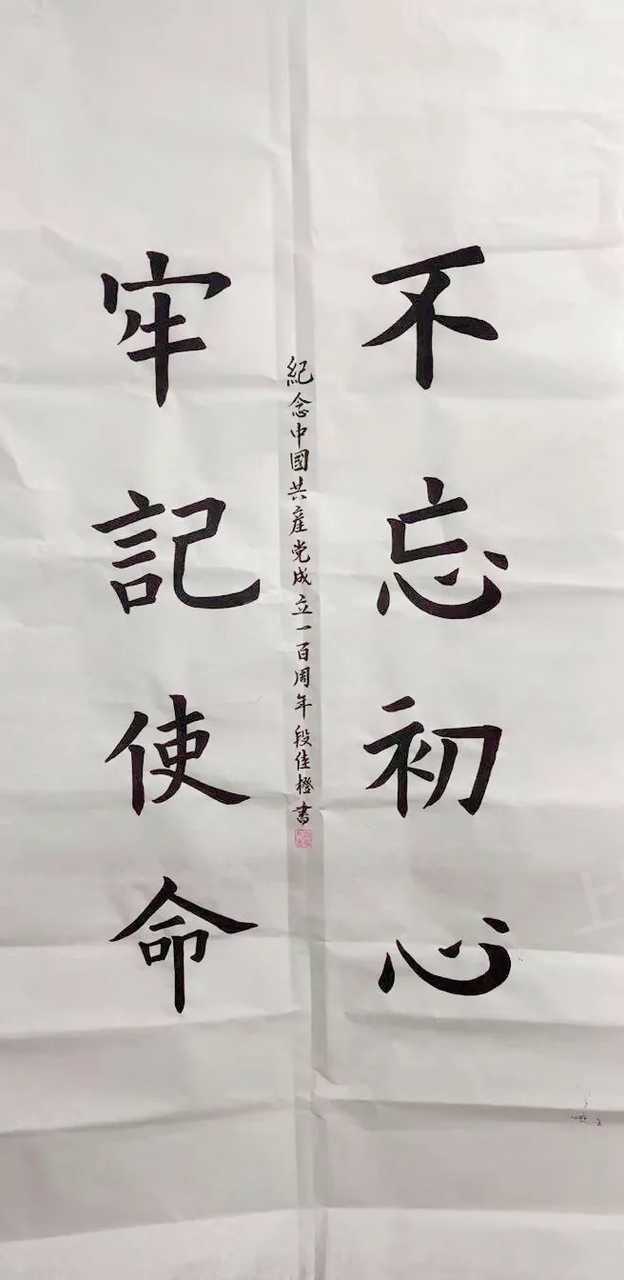 不忘初心
紀念中國共產党成立一百周年段佳橙書
牢記使命